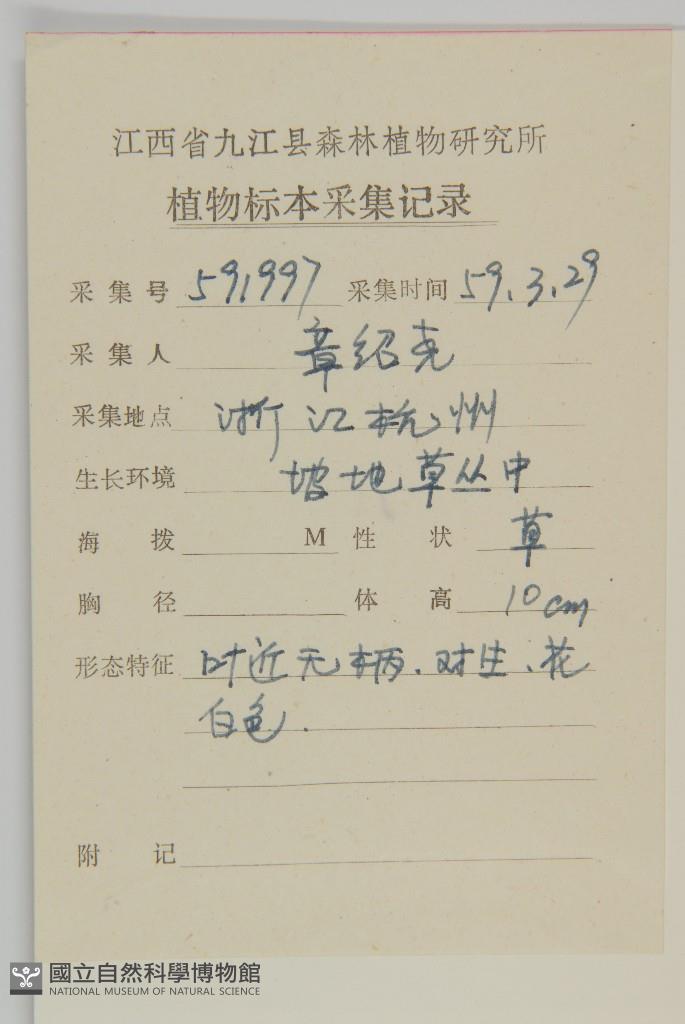 江西省九江县森林植物研究所
植物标本采集记录
采集号 591997 采集时间 59.3.29
采集人 章绍尧
采集地点 浙江杭州
生长环境 坡地草丛中
海拨 M 性状 草
胸径 体高 10cm
形态特征 叶近无柄.对生.花
白色.
附记
國立自然科學博物館
NATIONAL MUSEUM OF NATURAL SCIENCE